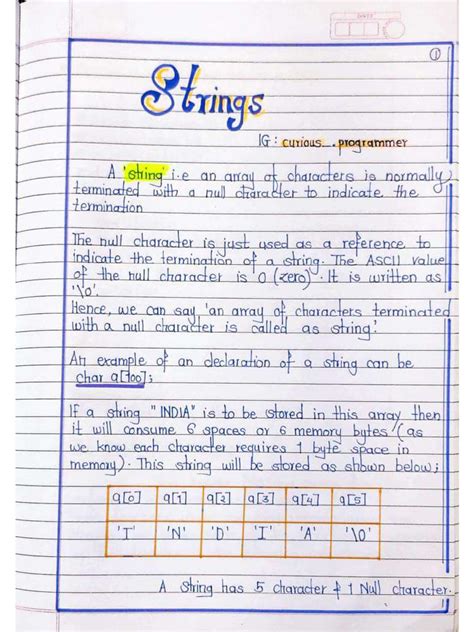 ①
Strings
IG: curious_.programmer
A 'string' i.e an array of characters is normally
terminated with a null character to indicate the
termination
The null character is just used as a reference to
indicate the termination of a string. The ASCII value
of the null character is 0 (zero). It is written as
'\0'.
Hence, we can say 'an array of characters terminated
with a null character is called as string.'
An example of an declaration of a string can be
char a[100];
If a string "INDIA" is to be stored in this array then
it will consume 6 spaces or 6 memory bytes (as
we know each character requires 1 byte space in
memory). This string will be stored as shown below;
a[0] a[1] a[2] a[3] a[4] a[5]
'I' 'N' 'D' 'I' 'A' '\0'
A string has 5 character & 1 Null character.